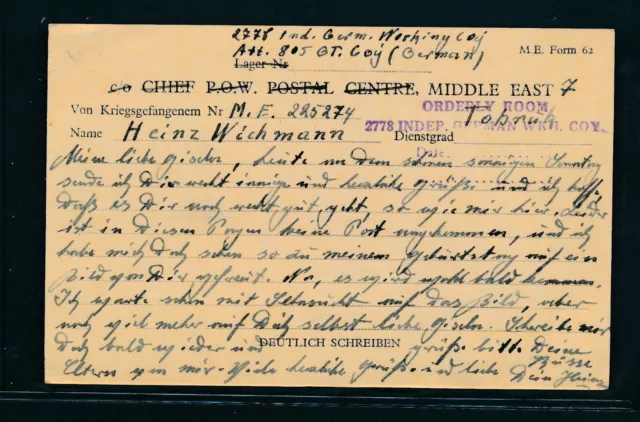 2778 Ind. Germ. Working Coy
Att. 805 GT. Coy (German)
Lager-Nr
M.E. Form 62
c/o CHIEF P.O.W. POSTAL CENTRE, MIDDLE EAST 7
Von Kriegsgefangenem Nr M.E. 225274
ORDERLY ROOM
Tobruk
2778 INDEP. GERMAN WKG. COY.
Name Heinz Wichmann Dienstgrad
Date
Meine liebe Gisela, heute an dem schönen sonnigen Sonntag
sende ich Dir recht innige und herzliche Grüße und ich hoffe
daß es Dir noch recht gut geht, so wie mir hier. Leider
ist in diesen Tagen keine Post angekommen, und ich
habe mich doch schon so zu meinem Geburtstag auf ein
Bild von Dir gefreut. Na, es wird wohl bald kommen.
Ich warte schon mit Sehnsucht auf das Bild, aber
noch viel mehr auf Dich selbst liebe Gisela. Schreibe mir
doch bald wieder und grüße bitte Deine
DEUTLICH SCHREIBEN
Eltern von mir. Viele herzliche Grüße und liebe
Küsse
Dein Heinz